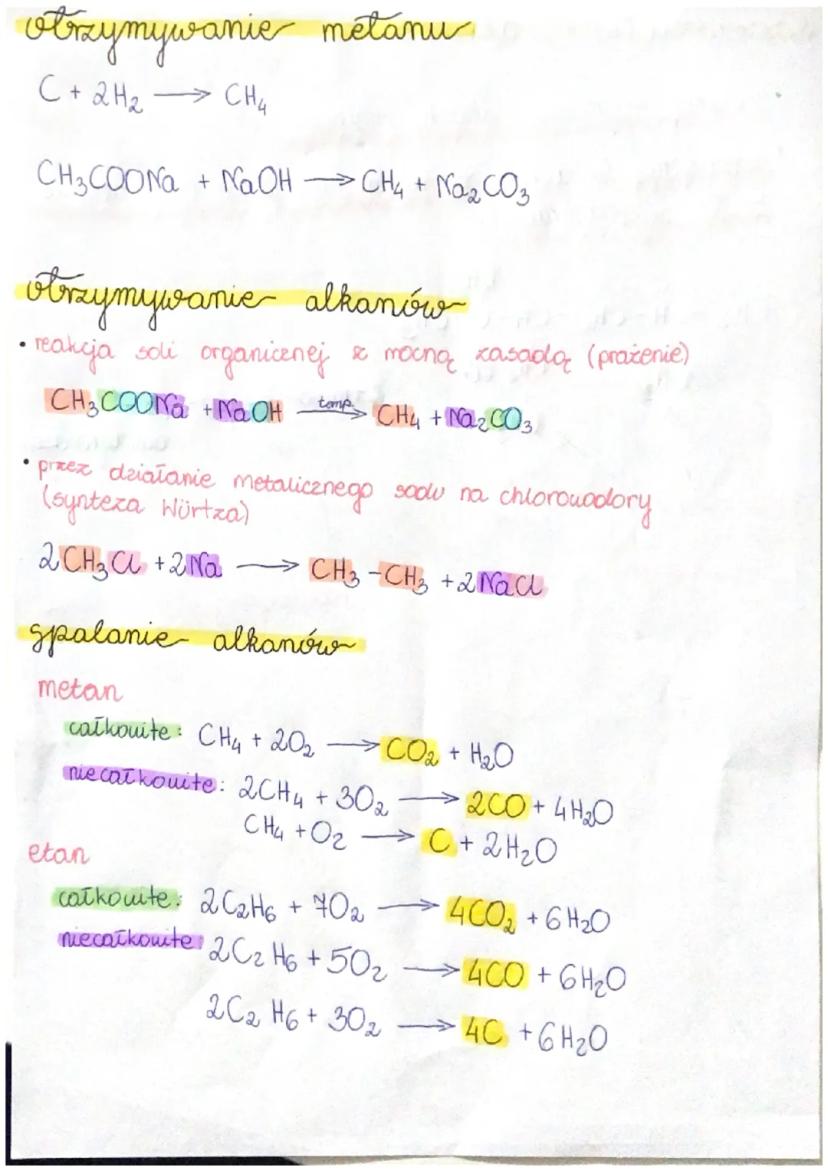 otrzymywanie metanu
C + 2H₂ ⟶ CH₄
CH₃COONa + NaOH ⟶ CH₄ + Na₂CO₃
otrzymywanie alkanów
• reakcja soli organicznej z mocną zasadą (prażenie)
CH₃COONa + NaOH temp. ⟶ CH₄ + Na₂CO₃
• przez działanie metalicznego sodu na chlorowodory
(synteza Würtza)
2CH₃Cl + 2Na ⟶ CH₃-CH₃ + 2NaCl
spalanie alkanów
metan
całkowite: CH₄ + 2O₂ ⟶ CO₂ + H₂O
niecałkowite: 2CH₄ + 3O₂ ⟶ 2CO + 4H₂O
CH₄ + O₂ ⟶ C + 2H₂O
etan
całkowite: 2C₂H₆ + 7O₂ ⟶ 4CO₂ + 6H₂O
niecałkowite: 2C₂H₆ + 5O₂ ⟶ 4CO + 6H₂O
2C₂H₆ + 3O₂ ⟶ 4C + 6H₂O